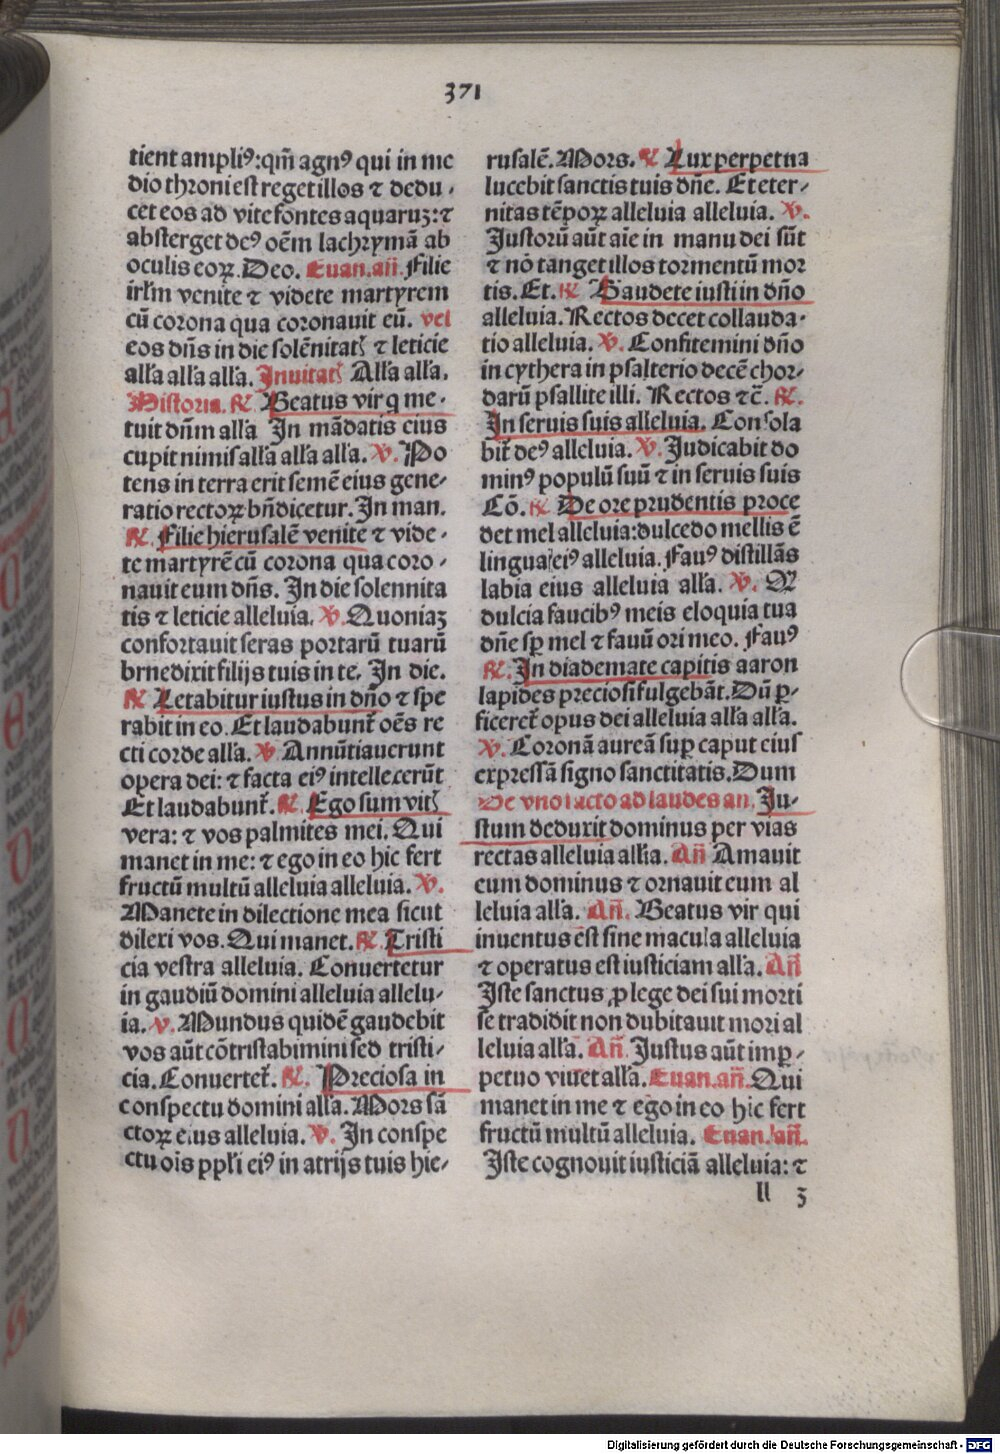 371
tient ampliꝰ: qm̄ agnꝰ qui in me
dio throni est reget illos ⁊ dedu⸗
cet eos ad vite fontes aquaruꝫ: ⁊
absterget deꝰ oēm lachrymā ab
oculis eoꝝ. Deo. Euan. añ. Filie
irłm venite ⁊ videte martyrem
cū corona qua coronauit eū. vel
eos dn̄s in die solēnitatꝭ ⁊ leticie
alła alła alła. Inuitatꝭ Alła alła.
Historia. ℟ Beatus vir q me⸗
tuit dn̄m alła In mādatis eius
cupit nimis alła alła alła. ℣. Po
tens in terra erit semē eius gene⸗
ratio rectoꝝ bn̄dicetur. In man.
℟. Filie hierusalē venite ⁊ vide⸗
te martyrē cū corona qua coro⸗
nauit eum dn̄s. In die solennita
tis ⁊ leticie alleluia. ℣. Quoniaꝫ
confortauit seras portarū tuarū
brnedixit filijs tuis in te. In die.
℟ Letabitur iustus in dn̄o ⁊ spe
rabit in eo. Et laudabunt̄ oēs re
cti corde alła. ℣ Annūtiauerunt
opera dei: ⁊ facta eiꝰ intellecerūt
Et laudabunt̄. ℟. Ego sum vitꝭ
vera: ⁊ vos palmites mei. Qui
manet in me: ⁊ ego in eo hic fert
fructū multū alleluia alleluia. ℣.
Manete in dilectione mea sicut
dilexi vos. Qui manet. ℟. Tristi
cia vestra alleluia. Conuertetur
in gaudiū domini alleluia allelu⸗
ia. ℣. Mundus quidē gaudebit
vos aūt cōtristabimini sed tristi⸗
cia. Conuertet̄. ℟. Preciosa in
conspectu domini alła. Mors sā
ctoꝝ eius alleluia. ℣. In conspe
ctu ois ppłi eiꝰ in atrijs tuis hie⸗
rusalē. Mors. ℟ Lux perpetua
lucebit sanctis tuis dn̄e. Et eter⸗
nitas tēpoꝝ alleluia alleluia. ℣.
Justorū aūt aīe in manu dei sūt
⁊ nō tanget illos tormentū mor
tis. Et. ℟ Gaudete iusti in dn̄o
alleluia. Rectos decet collauda⸗
tio alleluia. ℣. Confitemini dn̄o
in cythera in psalterio decē chor⸗
darū psallite illi. Rectos ⁊c̄. ℟.
In seruis suis alleluia. Consola
bit̄ deꝰ alleluia. ℣. Judicabit do
minꝰ populū suū ⁊ in seruis suis
Cō. ℟ De ore prudentis proce
det mel alleluia: dulcedo mellis ē
lingua eiꝰ alleluia. Fauꝰ distillās
labia eius alleluia alła. ℣. Q̄
dulcia faucibꝰ meis eloquia tua
dn̄e sꝑ mel ⁊ fauū ori meo. Fauꝰ
℟. In diademate capitis aaron
lapides preciosi fulgebāt. Dū ꝑ⸗
ficeret̄ opus dei alleluia alła alła.
℣. Coronā aureā suꝑ caput eius
expressā signo sanctitatis. Dum
De vno sācto ad laudes an. Ju⸗
stum deduxit dominus per vias
rectas alleluia allła. Añ Amauit
eum dominus ⁊ ornauit eum al
leluia alła. Añ. Beatus vir qui
inuentus est sine macula alleluia
⁊ operatus est iusticiam alła. Añ
Iste sanctus ꝓ lege dei sui morti
se tradidit non dubitauit mori al
leluia alła. Añ. Justus aūt imꝑ⸗
petuo viuet alła. Euan. añ. Qui
manet in me ⁊ ego in eo hic fert
fructū multū alleluia. Euan. añ.
Iste cognouit iusticiā alleluia: ⁊
ll 3
Digitalisierung gefördert durch die Deutsche Forschungsgemeinschaft - DFG